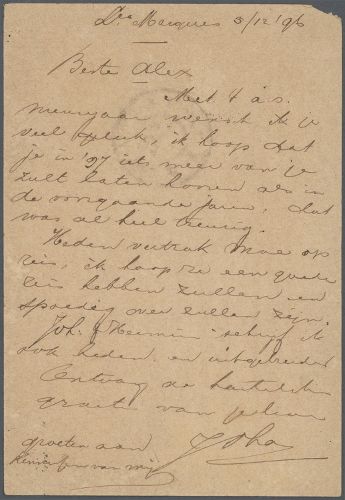 Lrs Marques 3/12 '96
Beste Alex
Met 't a.s.
nieuwjaar wensch ik je
veel geluk, ik hoop dat
je in '97 iets meer van je
zult laten hooren als in
de voorgaande jaren, dat
was al heel treurig.
Heden vertrok Moe op
reis, ik hoop ze een goede
reis hebben zullen en
spoedig over zullen zijn.
Joh. schrijf ik
ook heden en uitgebreider
Ontvang de hartelijkste
groeten van je
Joha
groeten aan
van mij